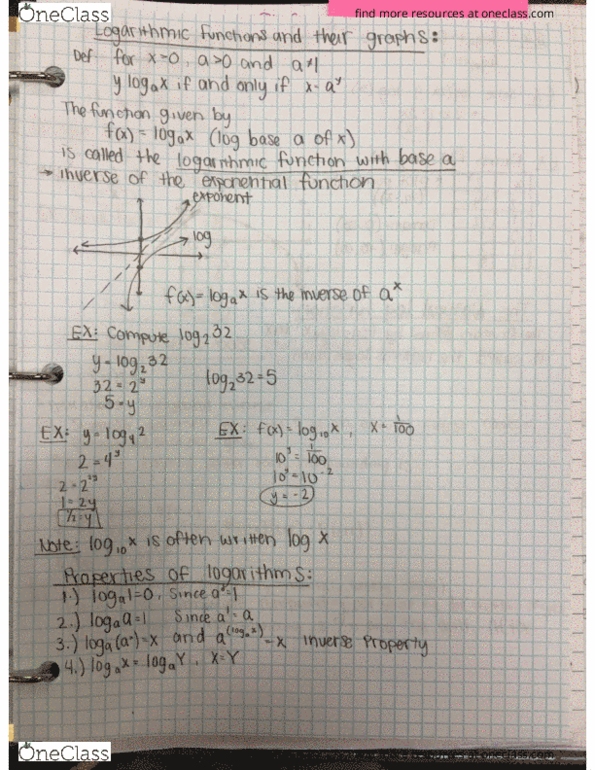 OneClass
find more resources at oneclass.com
Logarithmic functions and their graphs:
Def for x>0, a>0 and a≠1
y log_a x if and only if x = a^y
The function given by
f(x) = log_a x (log base a of x)
is called the logarithmic function with base a
→ inverse of the exponential function
exponent
log
f(x) = log_a x is the inverse of a^x
EX: Compute log_2 32
y = log_2 32
32 = 2^y
log_2 32 = 5
5 = y
EX: y = log_4 2
2 = 4^y
2 = 2^2y
1 = 2y
1/2 = y
EX: f(x) = log_10 x, x = 1/100
10^y = 1/100
10^y = 10^-2
y = -2
Note: log_10 x is often written log x
Properties of logarithms:
1.) log_a 1 = 0, since a^0 = 1
2.) log_a a = 1 Since a^1 = a
3.) log_a (a^x) = x and a^(log_a x) = x inverse Property
4.) log_a x = log_a Y, X = Y
OneClass
oneclass.com